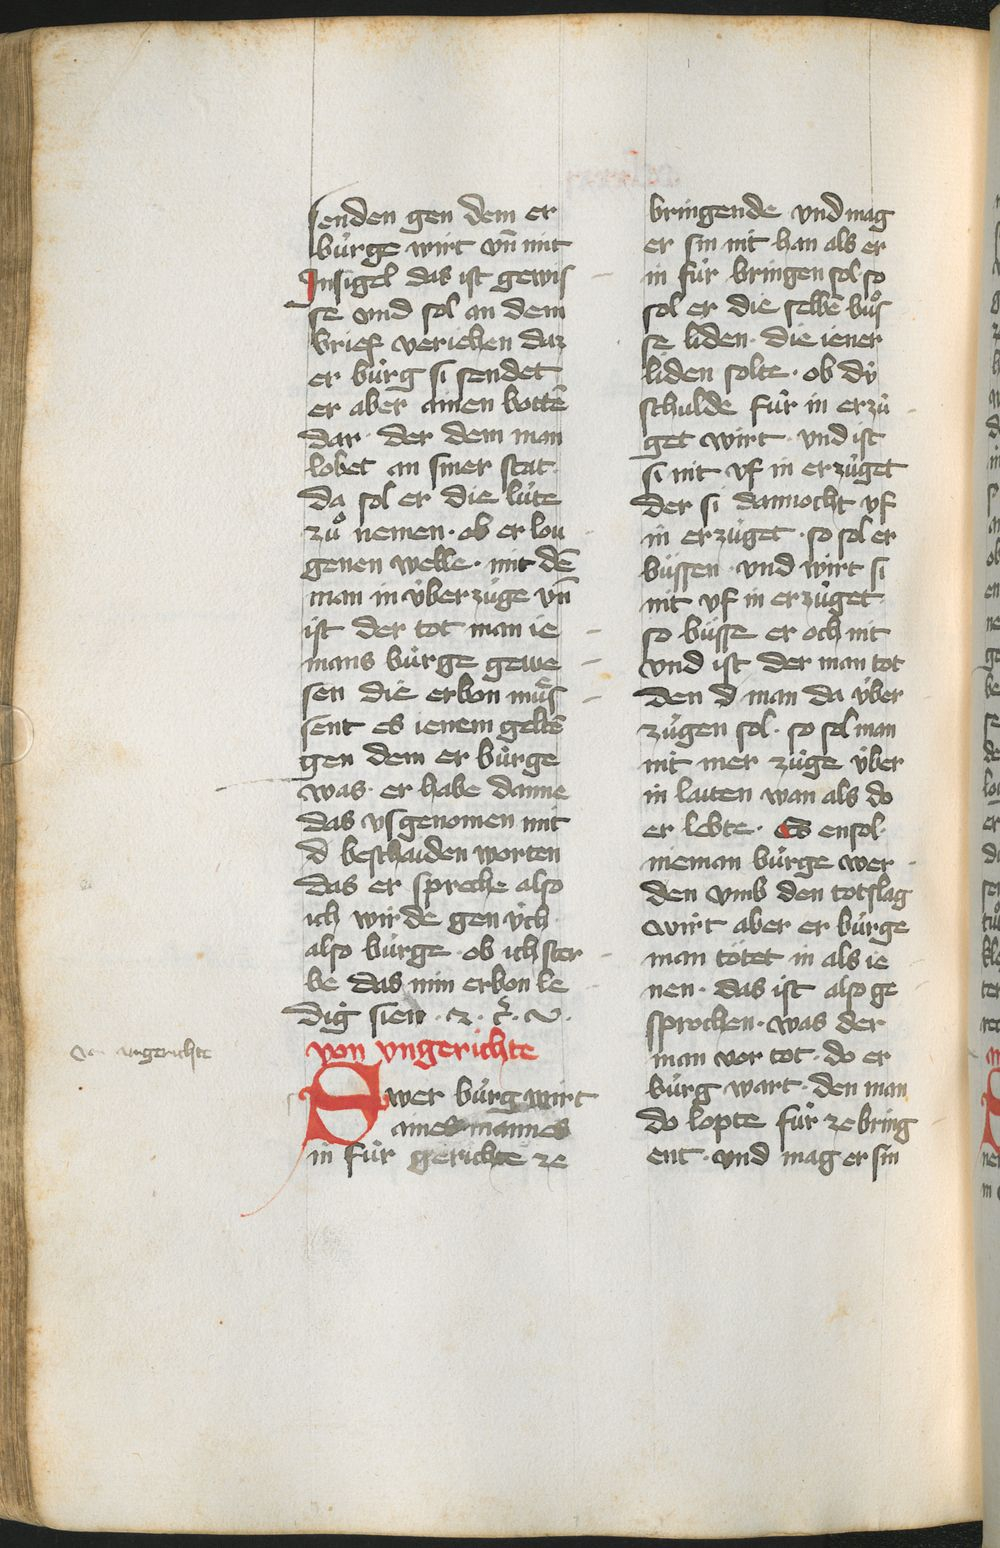 senden gen dem er
bu̍rge wirt vn̄ mit
Jnsigel das ist gewis
se vnd sol an dem
brief veriehen daz
er bu̍rg si sendet
er aber ainen bottē
dar · der dem man
lobet an siner stat ·
da sol er die lu̍te
zů nemen · ob er lou
genen welle · mit dē
man in u̍ber zu̍ge vn̄
ist der tot man ie
mans bu̍rge gewe
sen die erbon mu̍s
sent es ienem geltē
gen dem er bu̍rge
was · er habe danne
das vsgenomen mit
d beschaiden worten
das er spreche also
ich wirde gen u̍ch
also bu̍rge · ob ich ster
be das min erbon le
dig sien · ꝛ · c̄ · v ·
von vngerichte
von vngerichte
Swer bu̍rg wirt
aines mannes
in fu̍r gerichte ze
bringende vnd mag
er sin nit han als er
in fu̍r bringen sol so
sol er die selbē bůs
se liden · die iener
liden solte · ob dy̍
schulde fu̍r in erzu̍
get wirt · vnd ist
si nit vf in erzu̍get
der si dannocht vf
in erzu̍get · so sol er
bu̍ssen · vnd wirt si
nit vf in erzu̍get ·
so bu̍sse er och nit
vnd ist der man tot
den d man da u̍ber
zu̍gen sol · so sol man
nit mer zu̍ge u̍ber
in laiten wan als do
er lebte · Es ensol ·
nieman bu̍rge wer
den vmb den totslag
wirt aber er bu̍rge
man tötet in als ie
nen · das ist also ge
sprochen · was der
man vor tot · do er
bu̍rg wart · den man
do lopte fu̍r ze bring
ent · vnd mag er sin